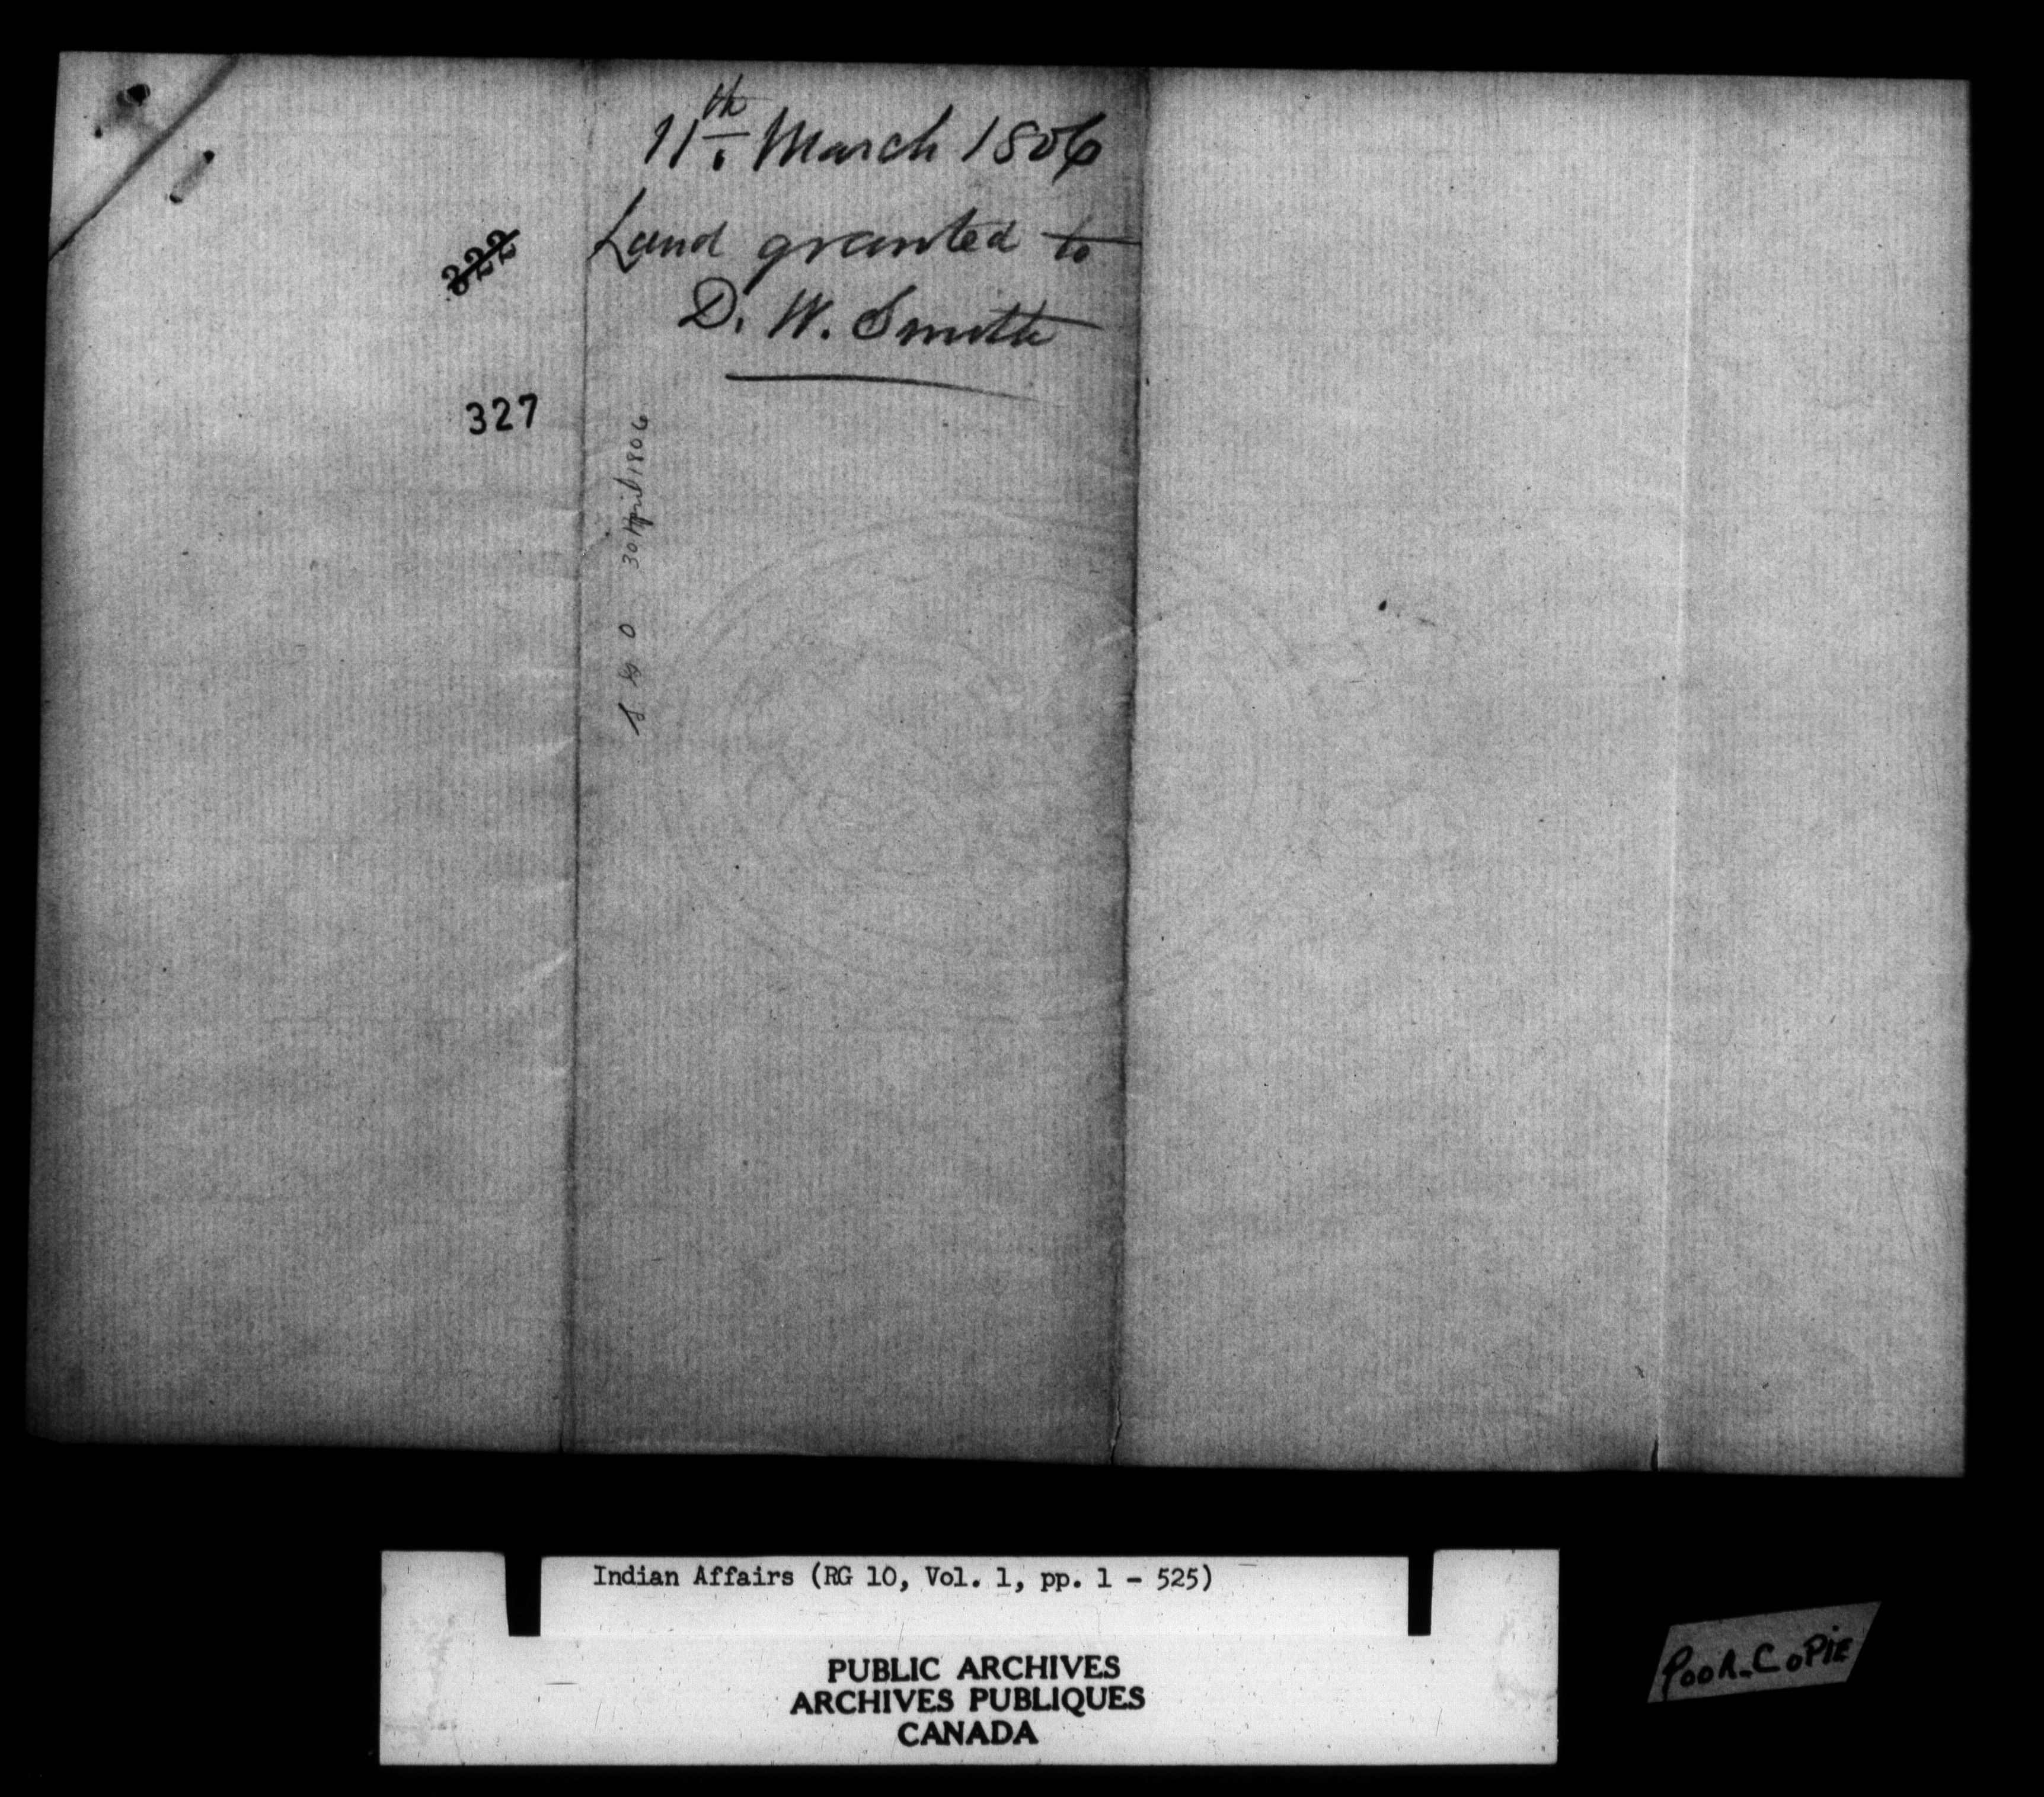 11th. March 1806
Land granted to
D. W. Smith
322
327
30 April 1806
Indian Affairs (RG 10, Vol. 1, pp. 1 - 525)
PUBLIC ARCHIVES
ARCHIVES PUBLIQUES
CANADA
POOR-COPIE